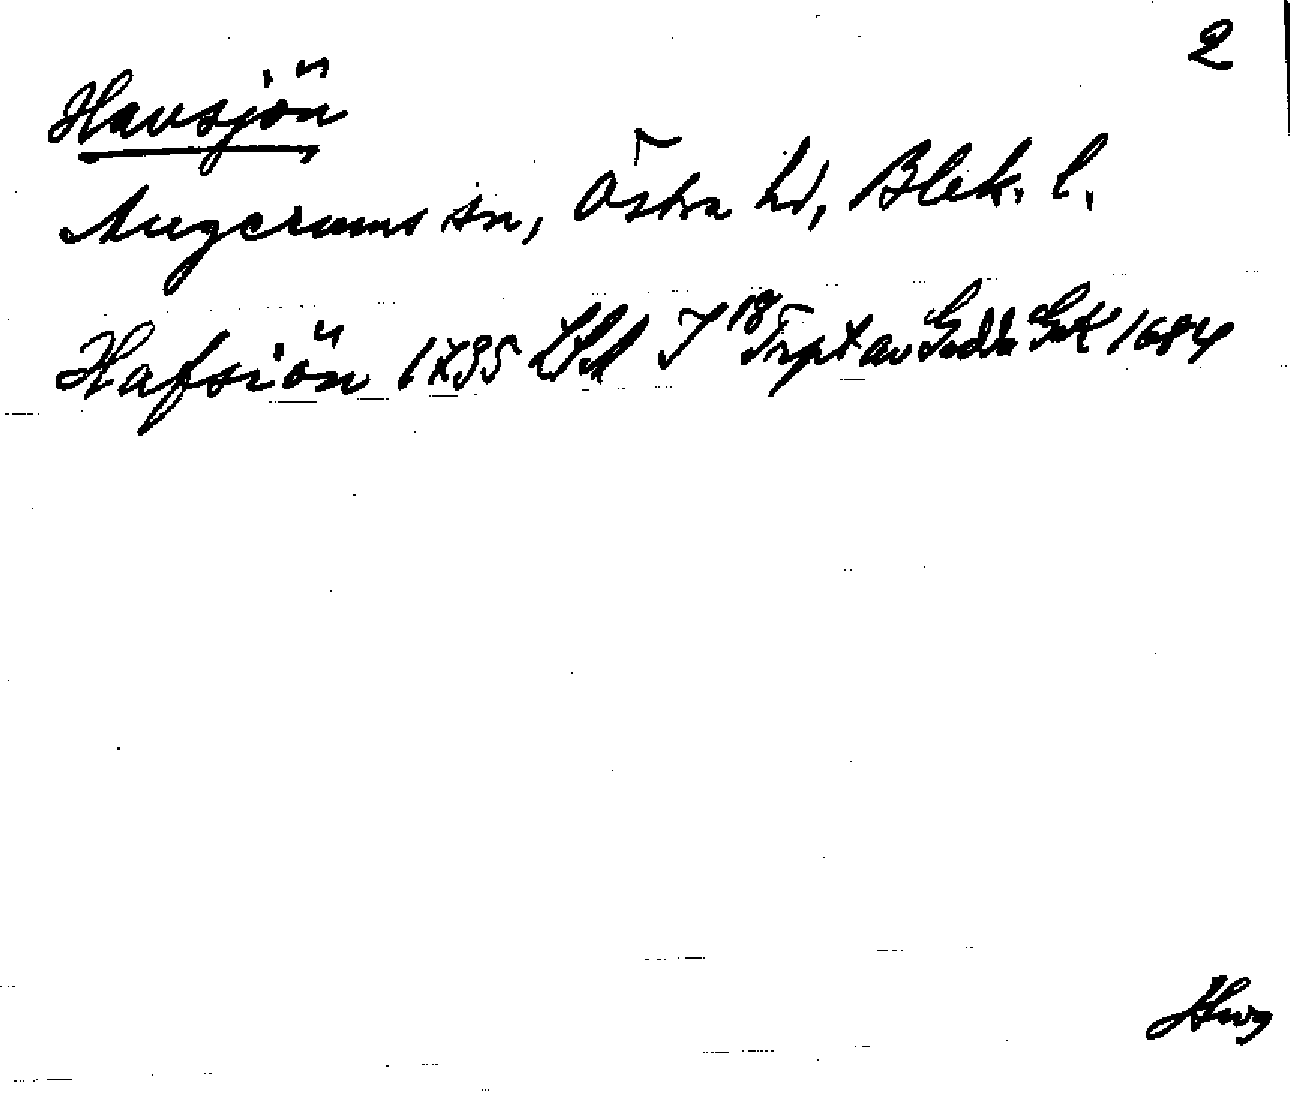 2
Havsjön
Augerums sn, Östra hd, Blek. l.
Hafsiön 1735 LSA I 18 Trpt av Gedda GK 1684